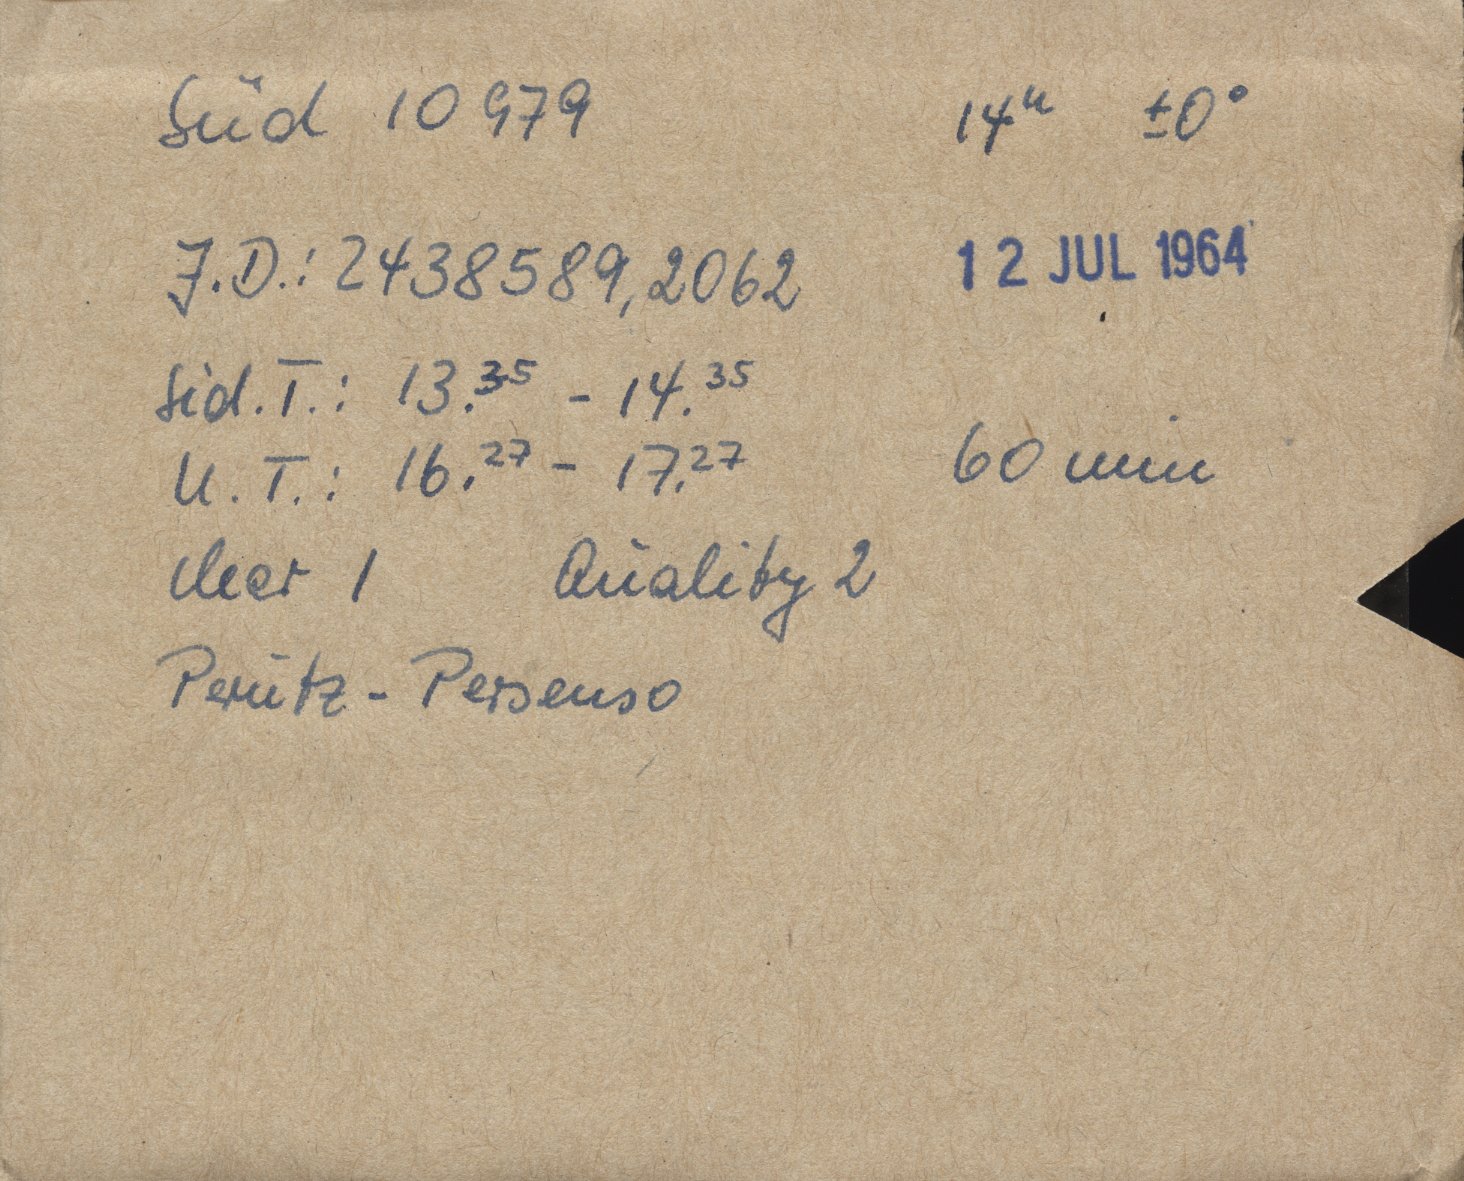 Süd 10979 14ʰ ±0°
J.D.: 2438589,2062 12 JUL 1964
Sid.T.: 13.³⁵ - 14.³⁵
U.T.: 16.²⁷ - 17.²⁷ 60 min
clear 1 Quality 2
Perutz - Persenso